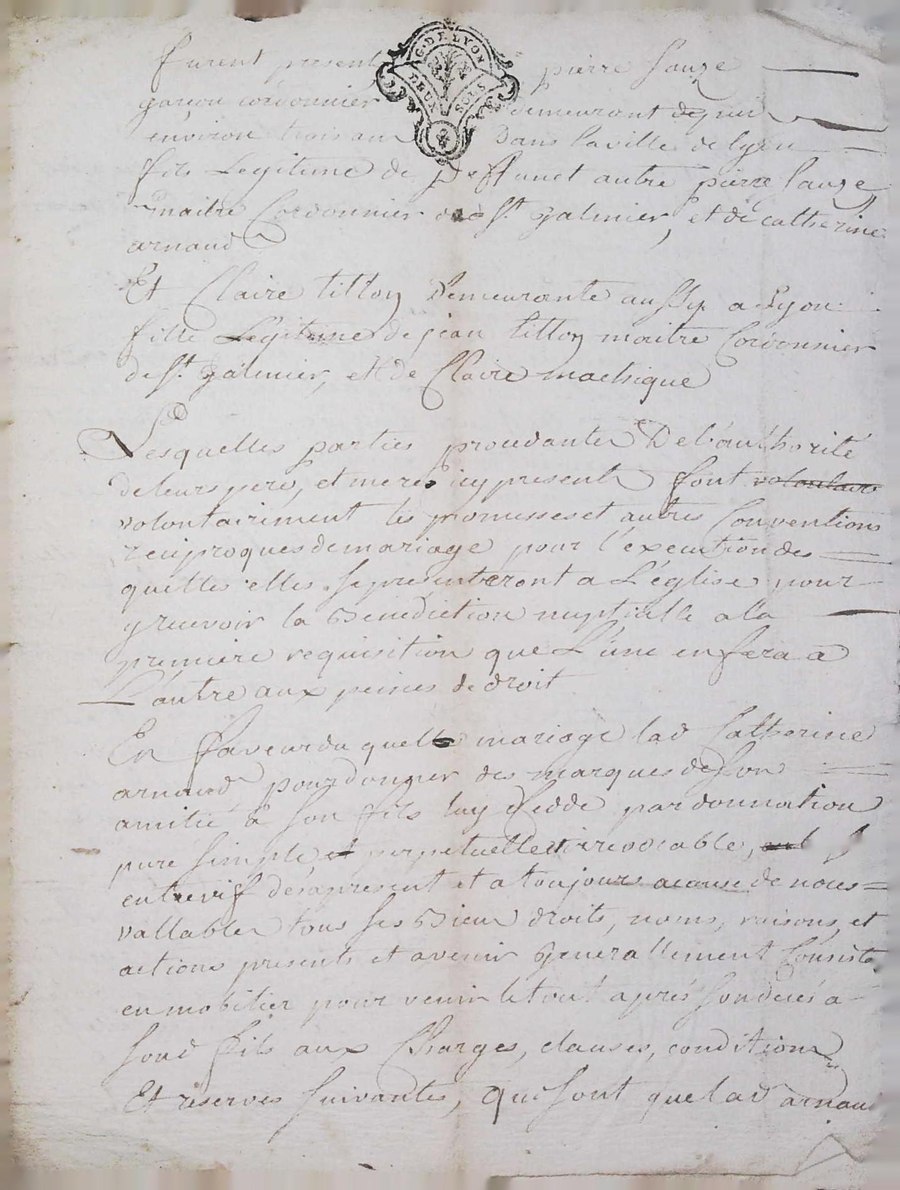 G. DE LYON
DEUX SOLS
furent presents pierre sauze
garçon cordonnier demeurant depuis
environ trois ans Dans la ville de lyon
fils Legitime de Deffunct autre pierre sauze
maitre Cordonnier de St galmier, et de catherine
arnaud
Et Claire tillon Demeurante aussy a Lyon
fille Legitime de jean tillon maitre Cordonnier
de St galmier, et de Claire
Lesquelles parties De l'authorité
de leurs pere, et meres icy presents font volontaire
volontairement les promesses et autres Conventions
reciproques de mariage pour l'execution des
quelles elles se presenteront a L'église pour
y recevoir la Benediction nuptialle a la
premiere requisition que L'une en fera a
L'autre aux peines de droit
En faveur du quelle mariage lad Catherine
arnaud pour donner des marques de son
amitié a son fils luy Cedde par donnation
pure simple et perpetuelle et irrevocable,
entrevif des apresent et a toujours a cause de noces
vallable tous ses Biens droits, noms, raisons, et
actions presents et avenir Generallement Consiste
en mobilier pour venir le tout après son deces a
sond fils aux Charges, clauses, conditions
Et reserves suivantes, qui sont que lad arnaud